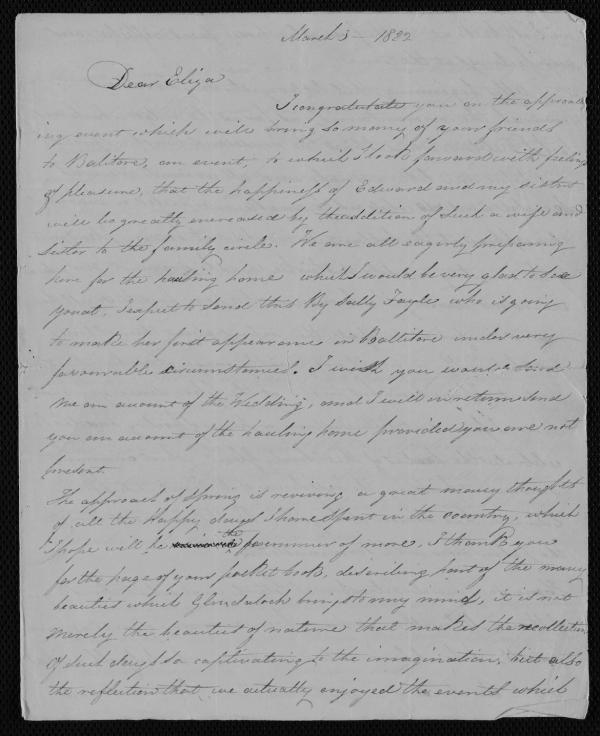 March 3 - 1832
Dear Eliza
I congratulate you on the approach
ing event which will bring so many of your friends
to Balitore, an event, to which I look forward with feelings
of pleasure, that the happiness of Edward and my sister
will be greatly encreased by the addition of such a wife and
sister to the family circle. We are all eagerly preparing
here for the hauling home which I would be very glad to see
you at, I expect to send this By Sally Fayle who is going
to make her first appearance in Ballitore under very
favourable circumstances. I wish you would send
me an account of the Wedding, and I will in return send
you an account of the hauling home provided you are not
present.
The approach of spring is reviving a great many thoughts
of all the happy days I have spent in the country, which
I hope will be the forerunner of more, I thank you
for the page of your pocket book, describing part of the many
beauties which Glendaloch brings to my mind, it is not
merely the beauties of nature that makes the recollection
of such days so captivating to the imagination, but also
the reflection that we actually enjoyed the events which